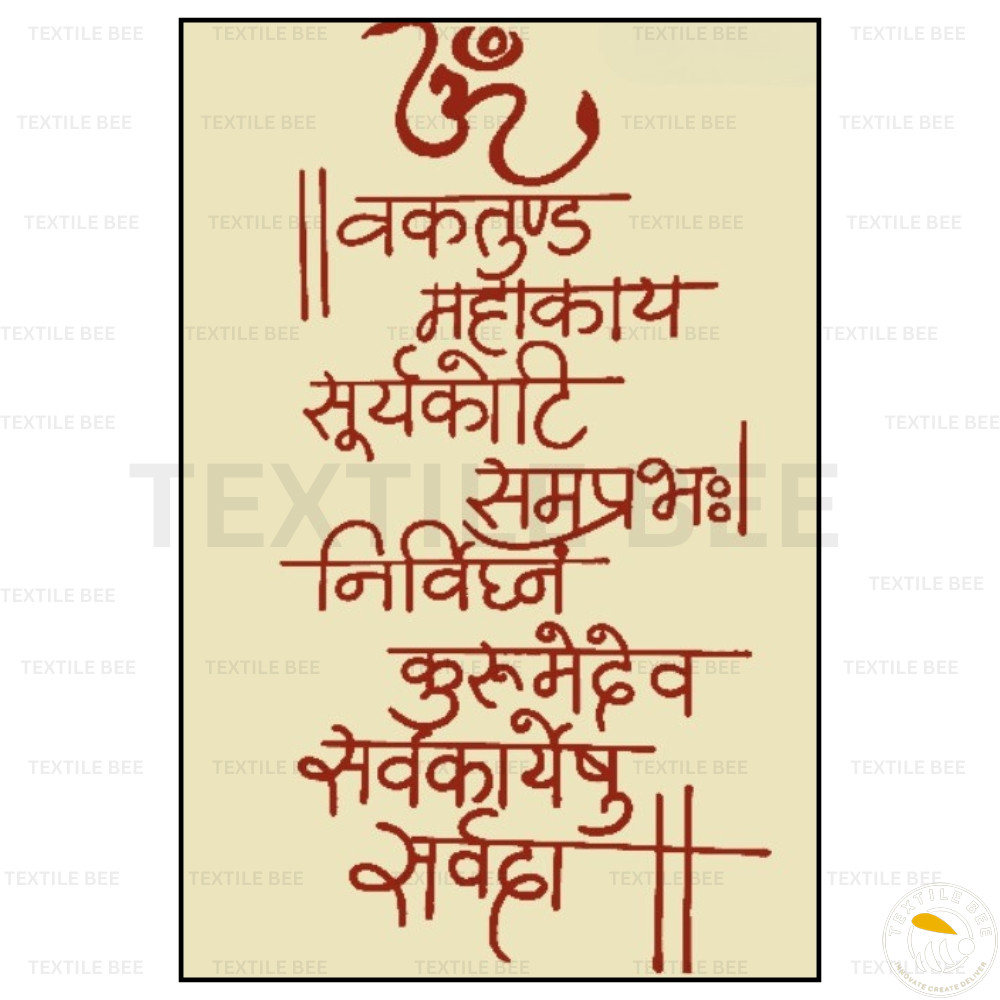 ॐ
॥ वकतुण्ड
महाकाय
सूर्यकोटि
समप्रभः।
TEXTILE BEE
निर्विघ्नं
कुरूमेदेव
सर्वकार्येषु
सर्वदा ॥
TEXTILE BEE
INNOVATE CREATE DELIVER